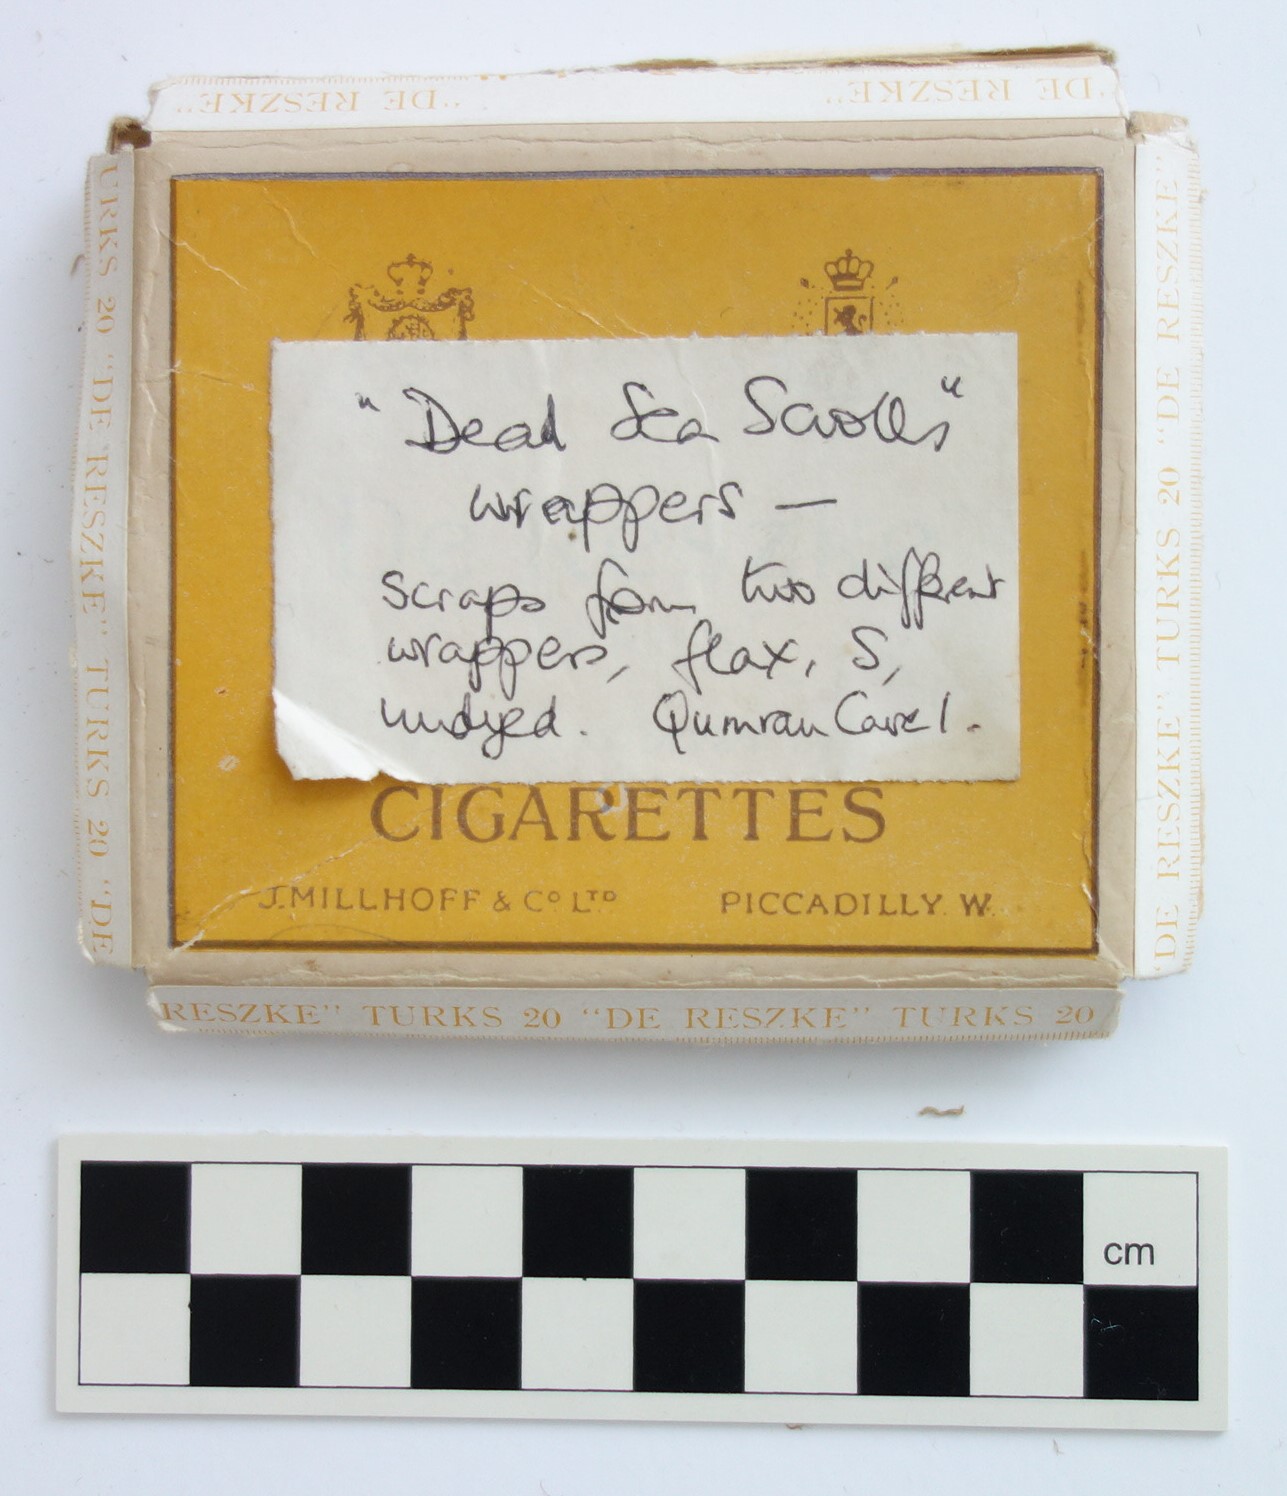 "DE RESZKE" "DE RESZKE"
URKS 20 "DE RESZKE" TURKS 20 "DE
"Dead Sea Scrolls"
wrappers —
scraps from two different
wrappers, flax, S,
undyed. Qumran Cave 1.
CIGARETTES
J. MILLHOFF & Co LTD PICCADILLY. W.
"DE RESZKE" TURKS 20 "DE RESZKE"
RESZKE" TURKS 20 "DE RESZKE" TURKS 20
cm